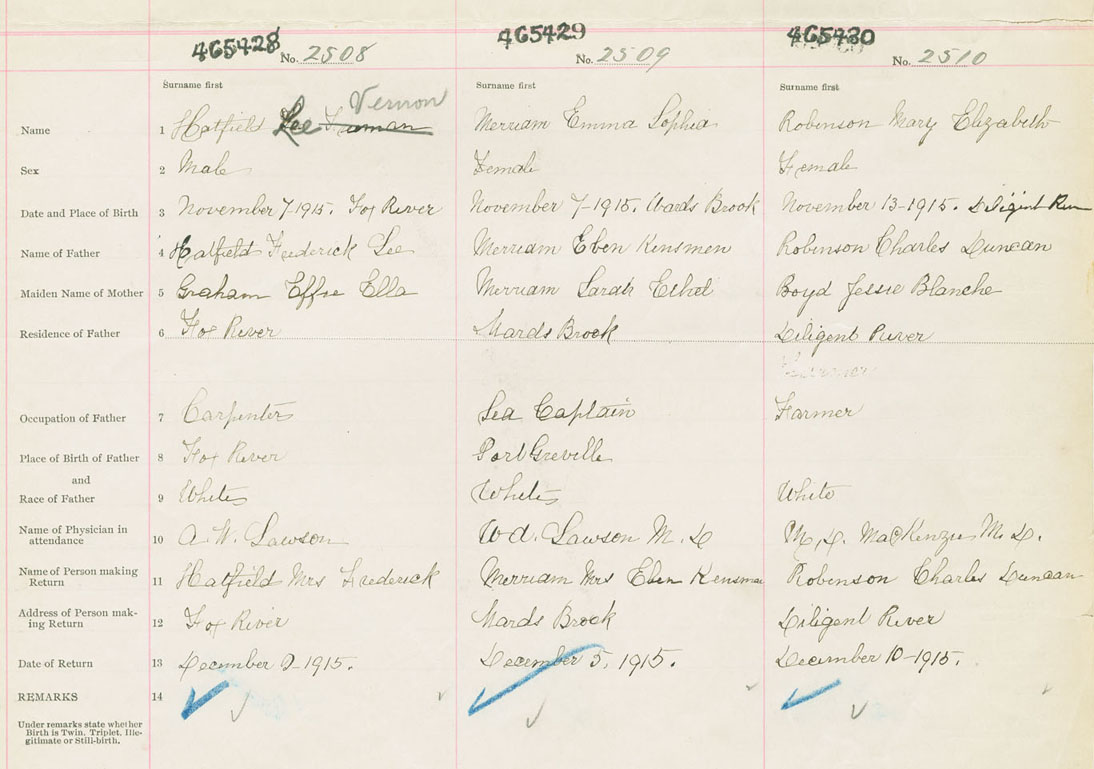 465428 465429 465430
No. 2508 No. 2509 No. 2510
Surname first Surname first Surname first
Vernon
Name 1 Hatfield Lee Truman Merriam Emma Sophia Robinson Mary Elizabeth
Sex 2 Male Female Female
Date and Place of Birth 3 November 7-1915. Fox River November 7-1915. Wards Brook November 13-1915. Diligent River
Name of Father 4 Hatfield Frederick Lee Merriam Eben Kensmen Robinson Charles Duncan
Maiden Name of Mother 5 Graham Effie Ella Merriam Sarah Ethel Boyd Jessie Blanche
Residence of Father 6 Fox River Wards Brook Diligent River
Occupation of Father 7 Carpenter Sea Captain Farmer
Place of Birth of Father 8 Fox River Port Greville
and
Race of Father 9 White White White
Name of Physician in
attendance 10 A. W. Lawson Lawson M. D M. D. MacKenzie M. D.
Name of Person making
Return 11 Hatfield Mrs Frederick Merriam Mrs Eben Kensman Robinson Charles Duncan
Address of Person mak-
ing Return 12 Fox River Wards Brook Diligent River
Date of Return 13 December 9-1915. December 5, 1915. December 10-1915.
REMARKS 14
Under remarks state whether
Birth is Twin, Triplet, Ille-
gitimate or Still-birth.